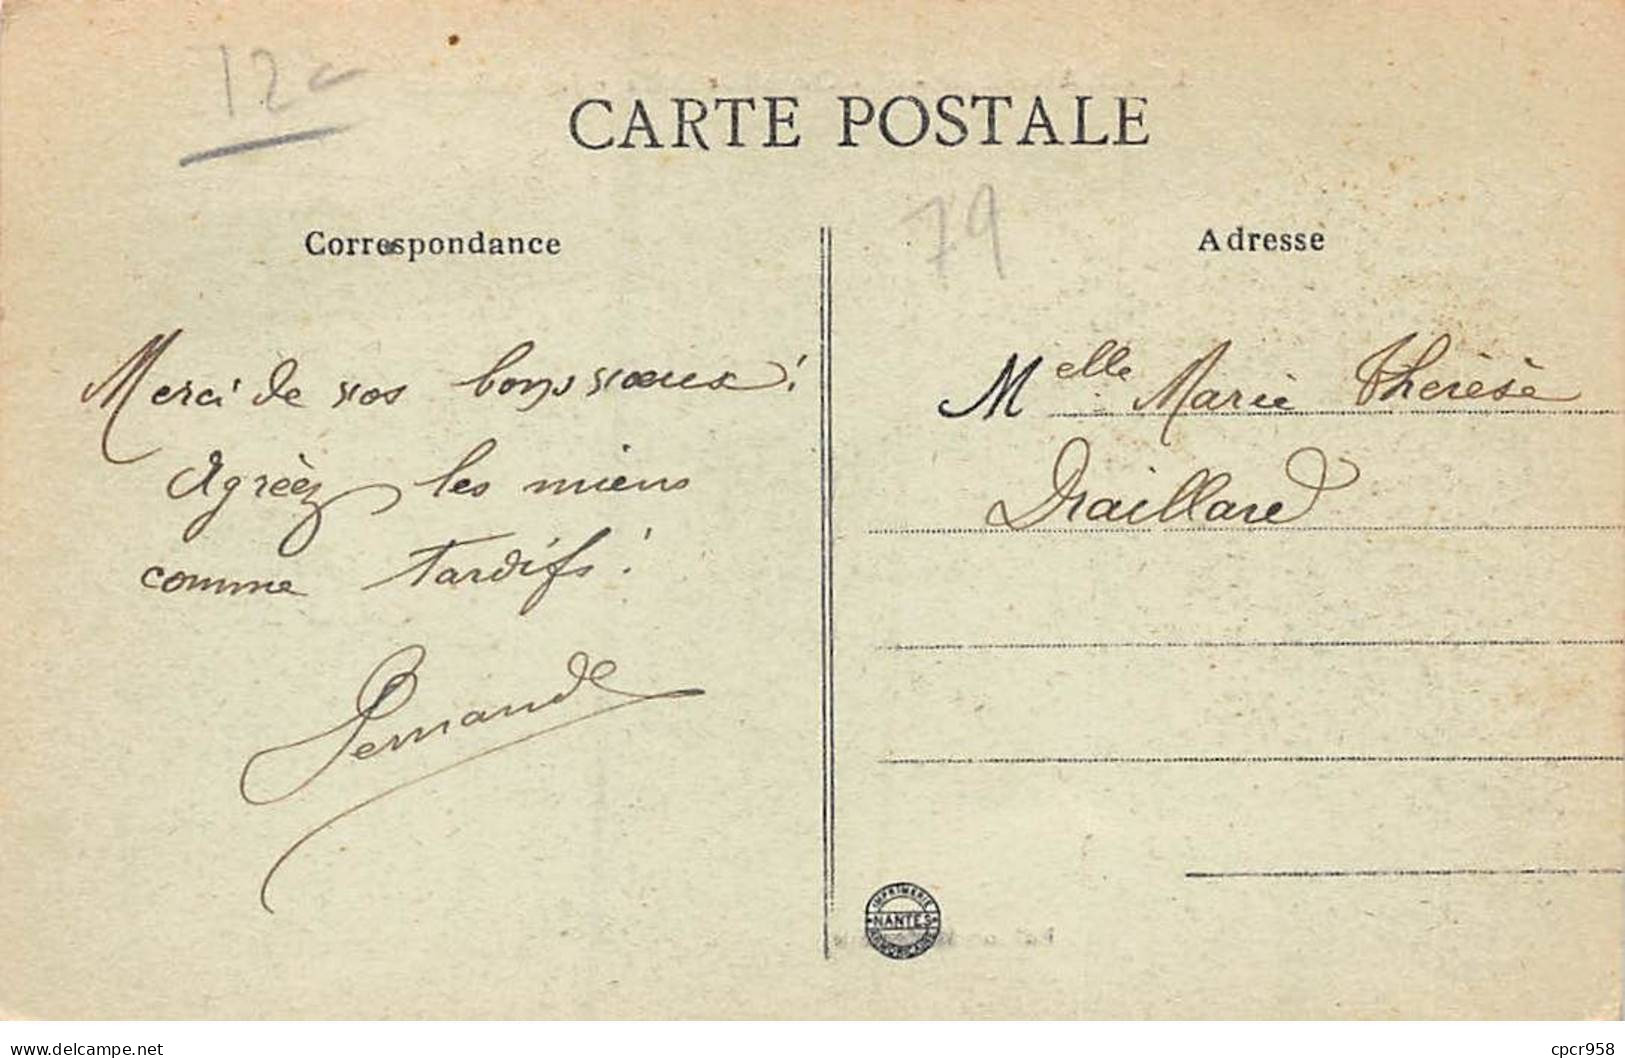 12c
CARTE POSTALE
79
Correspondance
Adresse
Merci de vos bons vœux!
Agréez les miens
comme tardifs!
Fernande
Melle Marie Thérèse
Draillard
IMPRIMERIE
NANTES
ARMORICAINE
www.delcampe.net
cpcr958